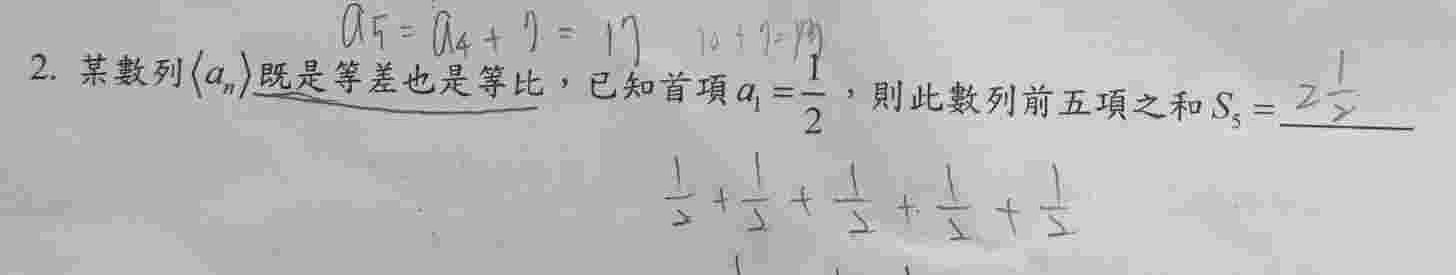 a₅ = a₄ + 7 = 17
2. 某數列⟨aₙ⟩既是等差也是等比，已知首項 a₁ = 1/2，則此數列前五項之和 S₅ = 2 1/2
1/2 + 1/2 + 1/2 + 1/2 + 1/2